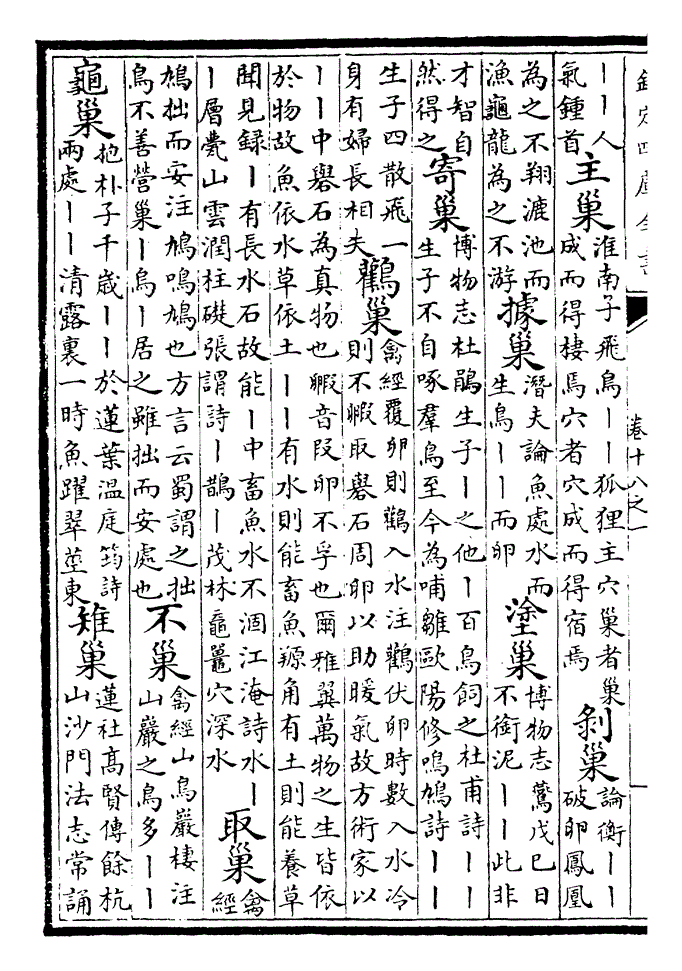 欽定四庫全書
卷十八之一
丨丨人
氣鍾首
主巢
淮南子飛鳥丨丨狐狸主穴巢者巢
成而得棲焉穴者穴成而得宿焉
剝巢
論衡丨丨
破卵鳳凰
為之不翔漉池而
漁龜龍為之不游
據巢
潛夫論魚處水而
生鳥丨丨而卵
塗巢
博物志鷰戊巳日
不銜泥丨丨此非
才智自
然得之
寄巢
博物志杜鵑生子丨之他丨百鳥飼之杜甫詩丨丨
生子不自啄羣鳥至今為哺雛歐陽修鳴鳩詩丨丨
生子四散飛一
身有婦長相失
鸛巢
禽經覆卵則鸛入水注鸛伏卵時數入水冷
則不毈取礜石周卵以助暖氣故方術家以
丨丨中礜石為真物也毈音段卵不孚也爾雅翼萬物之生皆依
於物故魚依水草依土丨丨有水則能畜魚羱角有土則能養草
聞見録丨有長水石故能丨中畜魚水不涸江淹詩水丨
丨層甍山雲潤柱礎張謂詩丨鵲丨茂林黿鼉穴深水
取巢
禽
經
鳩拙而安注鳩鳴鳩也方言云蜀謂之拙
鳥不善營巢丨鳥丨居之雖拙而安處也
不巢
禽經山鳥巖棲注
山巖之鳥多丨丨
龜巢
抱朴子千歳丨丨於蓮葉溫庭筠詩
兩處丨丨清露裏一時魚躍翠莖東
雉巢
蓮社髙賢傳餘杭
山沙門法志常誦